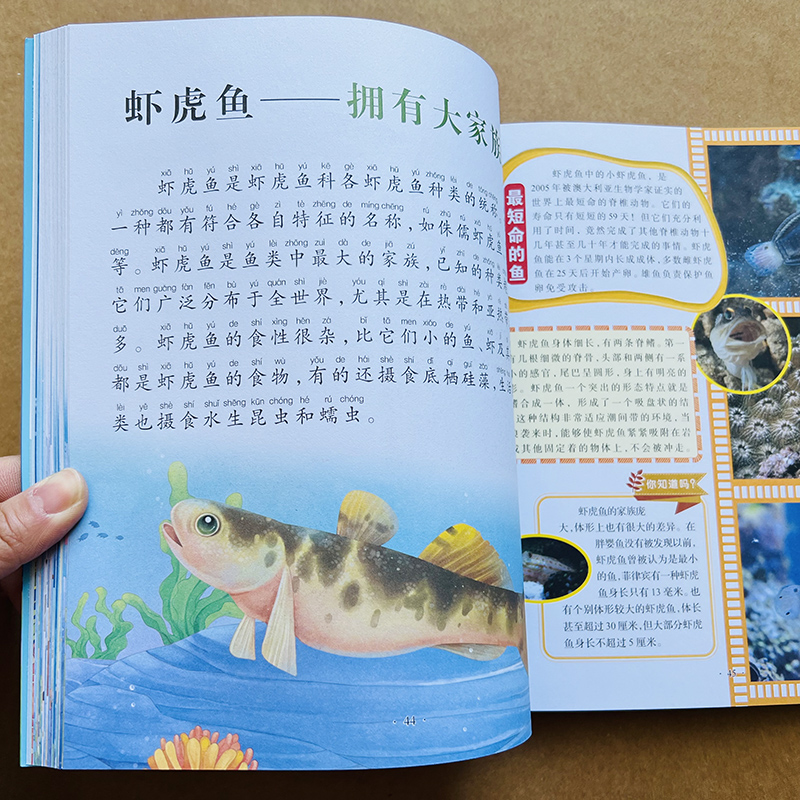 虾虎鱼——拥有大家族
xiā hǔ yú shì xiā hǔ yú kē gè xiā hǔ yú zhǒng lèi de tǒng chēng
虾虎鱼是虾虎鱼科各虾虎鱼种类的统称
yì zhǒng dōu yǒu fú hé gè zì tè zhēng de míng chēng rú zhū rú xiā hǔ yú
一种都有符合各自特征的名称，如侏儒虾虎鱼
děng xiā hǔ yú shì yú lèi zhōng zuì dà de jiā zú yǐ zhī de zhǒng lèi
等。虾虎鱼是鱼类中最大的家族，已知的种类
tā men guǎng fàn fēn bù yú quán shì jiè yóu qí shì zài rè dài hé yà rè
它们广泛分布于全世界，尤其是在热带和亚热
duō xiā hǔ yú de shí xìng hěn zá bǐ tā men xiǎo de yú xiā
多。虾虎鱼的食性很杂，比它们小的鱼、虾及
dōu shì xiā hǔ yú de shí wù yǒu de hái shè shí dǐ qī guī zǎo
都是虾虎鱼的食物，有的还摄食底栖硅藻，
lèi yě shè shí shuǐ shēng kūn chóng hé rú chóng
类也摄食水生昆虫和蠕虫。
· 44 ·
最短命的鱼
虾虎鱼中的小虾虎鱼，是
2005年被澳大利亚生物学家证实的
世界上最短命的脊椎动物。它们的
寿命只有短短的59天！但它们充分利
用了时间，竟然完成了其他脊椎动物十
几年甚至几十年才能完成的事情。虾虎
鱼能在3个星期内长成成体，多数雌虾虎
鱼在25天后开始产卵。雄鱼负责保护鱼
卵免受攻击。
虾虎鱼身体细长，有两条脊鳍。第一
有几根细微的脊骨，头部和两侧有一系
小的感官，尾巴呈圆形，身上有明亮的
。虾虎鱼一个突出的形态特点就是
鳍合成一体，形成了一个吸盘状的结
这种结构非常适应潮间带的环境，当
袭来时，能够使虾虎鱼紧紧吸附在岩
或其他固定着的物体上，不会被冲走。
你知道吗？
虾虎鱼的家族庞
大，体形上也有很大的差异。在
胖婴鱼没有被发现以前，
虾虎鱼曾被认为是最小
的鱼，菲律宾有一种虾虎
鱼身长只有13毫米。也
有个别体形较大的虾虎鱼，体长
甚至超过30厘米，但大部分虾虎
鱼身长不超过5厘米。
· 45 ·